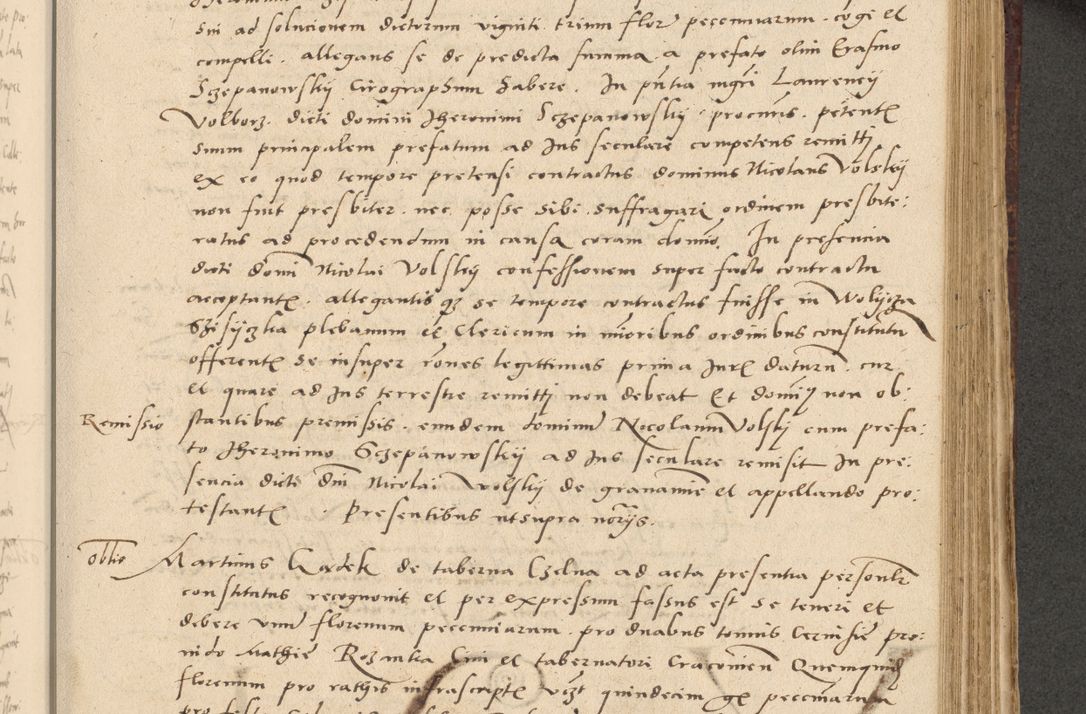 sui ad solucionem dictorum viginti trium flor pecuniarum cogi et
compelli. allegans se de predicta summa a prefato olim Erasmo
Sczepanowskij Cirographum habere. In pntia mgri Laurencij
Volborz. dicti domini Jheronimi Sczepanowskij procuris. petent
suum principalem prefatum ad Ius seculare competens remitti
ex eo quod tempore pretensi contractus dominus Nicolaus Volskij
non fuit presbiter. nec posse sibi suffragari ordinem presbite:
ratus ad procedendum in causa coram domino. In presencia
dicti domi Nicolai Volskij confessionem super facto contractu
acceptant. allegantis qz se tempore contractus fuisse in
plebanum et Clericum in minoribus ordinibus constitutu
offerent se insuper rones legittimas prima Jurz daturu. cur
et quare ad Ius terrestre remitti non debeat Et dominus non ob:
Remissio stantibus premissis. eundem dominum Nicolaum Volskij cum prefa:
to Jheronimo Sczepanowskij ad Ius seculare remisit In pre:
sencia dicti dni Nicolai Volskij de grauamine et appellando pro:
testant. Presentibus utsupra norijs.
oblio Martinus Kradek de taberna Czelna ad acta presentia personlr
constitutus recognouit et per expressum fassus est se teneri et
debere vnum florenum pecuniarum. pro duabus tonnis Ceruisie pro:
uido Mathie Rozanka Ciui et tabernatori Cracouien Quemquid
florenum pro rathis infrascript vizt quindecim gr pecuniarum
pro fest